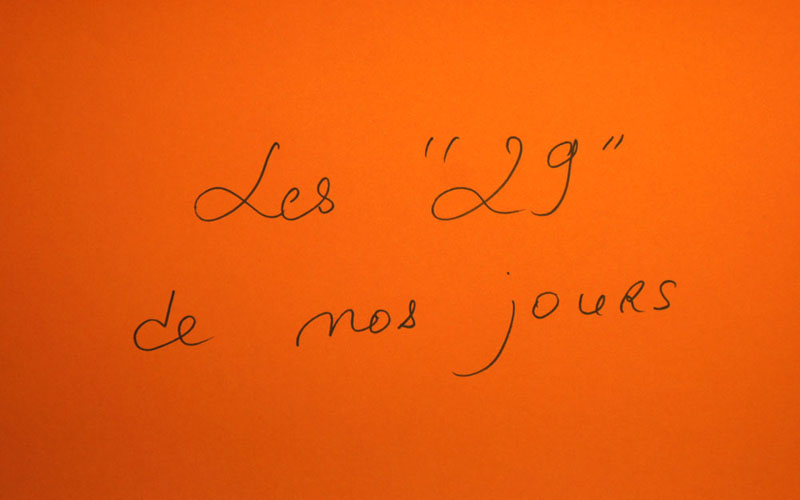 Les "29"
de nos jours